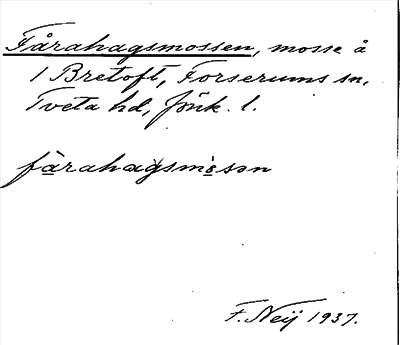 Fårahagsmossen, mosse å
1 Bretoft, Forserums sn,
Tveta hd, Jönk. l.
fårahagsmosən
F. Neij 1937.